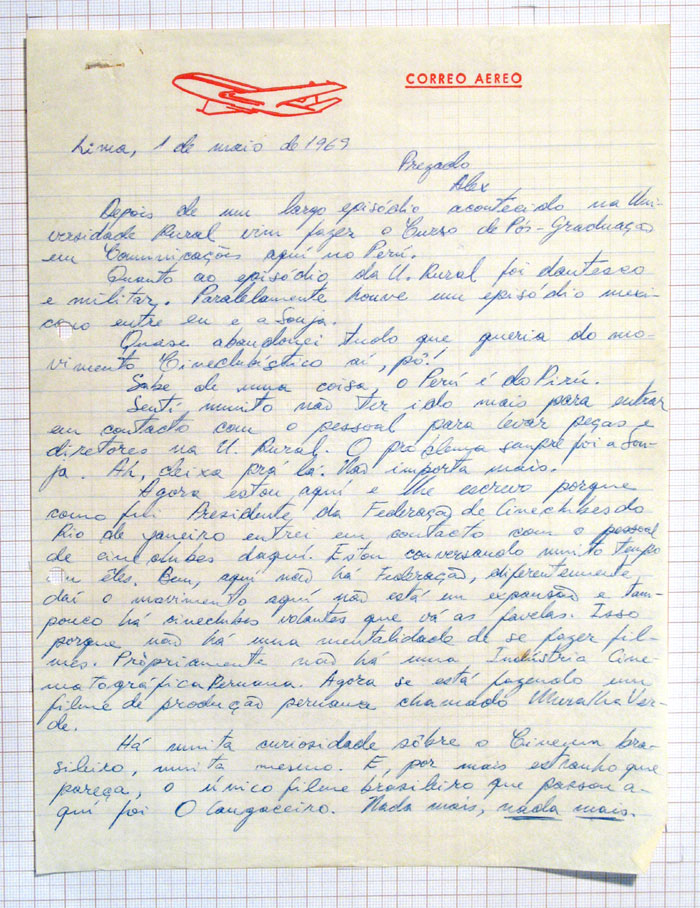 CORREO AEREO
Lima, 1 de maio de 1969
Prezado
Alex
Depois de um largo episódio acontecido na Uni-
versidade Rural vim fazer o Curso de Pós-Graduação
em Comunicações aquí no Perú.
Quanto ao episódio da U. Rural foi dantesco
e militar. Paralelamente houve um episódio mexi-
cano entre eu e a Sonja.
Quase abandonei tudo que queria do mo-
vimento Cineclubístico aí, pô!
Sabe de uma coisa, o Perú é do Pirú.
Sentí muito não ter ido mais para entrar
em contacto com o pessoal para levar peças e
diretores na U. Rural. O problema sempre foi a Son-
ja. Ah, deixa prá lá. Não importa mais.
Agora estou aqui e lhe escrevo porque
como fui Presidente da Federação de Cineclubes do
Rio de janeiro entrei em contacto com o pessoal
de cineclubes daquí. Estou conversando muito tempo
com êles. Bem, aquí não há Federação, diferentemente
daí o movimento aquí não está em expansão e tam-
pouco há cineclubes volantes que vá as favelas. Isso
porque não há uma mentalidade de se fazer fil-
mes. Pròpriamente não há uma Indústria Cine-
matográfica Peruana. Agora se está fazendo um
filme de produção peruana chamado Muralha Ver-
de.
Há muita curiosidade sôbre o Cinema bra-
sileiro, muita mesmo. E, por mais estranho que
pareça, o único filme brasileiro que passou a-
quí foi O Cangaceiro. Nada mais, nada mais.